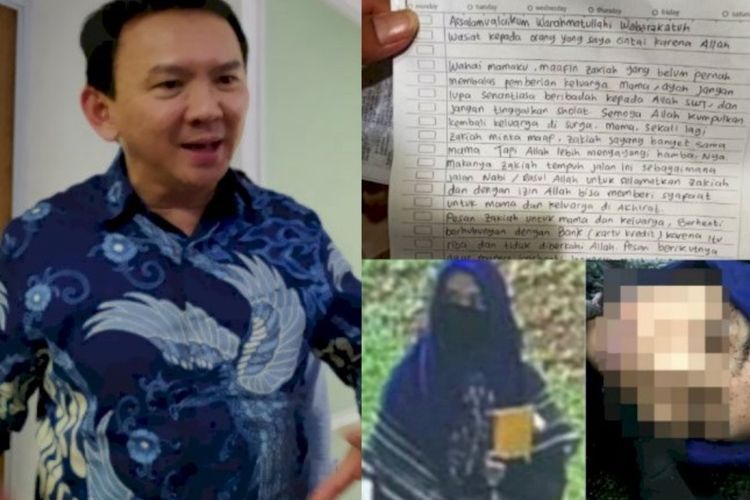 monday tuesday wednesday thursday friday
Assalamualaikum Warahmatullahi Wabarakatuh
Wasiat kepada orang yang saya cintai karena Allah
Wahai mamaku, maafin zakiah yang belum pernah
membalas pemberian keluarga mama, ayah Jangan
lupa senantiasa beribadah kepada Allah SWT, dan
Jangan tinggalkan sholat. Semoga Allah kumpulkan
kembali keluarga di surga. mama, sekali lagi
zakiah minta maaf, zakiah sayang banget sama
mama Tapi Allah lebih menyayangi hamba Nya
Makanya zakiah tempuh jalan ini sebagaimana
jalan Nabi / Rasul Allah untuk selamatkan zakiah
dan dengan izin Allah bisa memberi syafaat
untuk mama dan keluarga di Akhirat
Pesan zakiah untuk mama dan keluarga, Berhenti
berhubungan dengan Bank (kartu kredit) karena itu
riba dan tidak diberkahi Allah. Pesan berikutnya